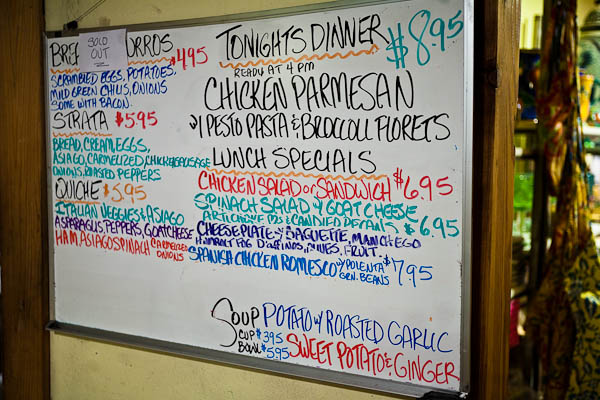 SOLD
OUT
$4.95
SCRAMBLED EGGS, POTATOES,
MILD GREEN CHILIS, ONIONS
SOME WITH BACON.
STRATA $5.95
BREAD, CREAM, EGGS,
ASIAGO, CARMELIZED CHICKEN SAUSAGE
ONIONS, ROASTED PEPPERS
QUICHE $5.95
ITALIAN VEGGIES & ASIAGO
ASPARAGUS, PEPPERS, GOAT CHEESE
HAM, ASIAGO SPINACH CARMELIZED
ONIONS
TONIGHTS DINNER $8.95
READY AT 4 PM
CHICKEN PARMESAN
W/ PESTO PASTA & BROCCOLI FLORETS
LUNCH SPECIALS
CHICKEN SALAD OR SANDWICH $6.95
SPINACH SALAD W/ GOAT CHEESE
& CANDIED $6.95
CHEESE PLATE W/ BAGUETTE, MANCHEGO
FRUIT.
SPANISH CHICKEN ROMESCO W/ POLENTA $7.95
GRN. BEANS
SOUP POTATO W/ ROASTED GARLIC
CUP $3.95
BOWL $5.95 SWEET POTATO & GINGER